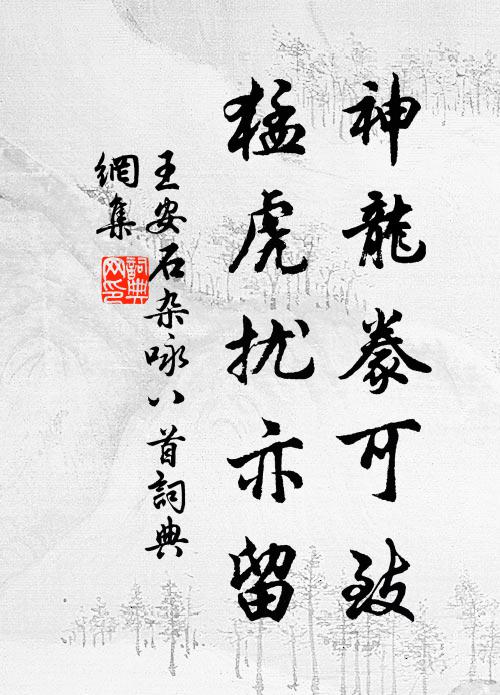 神龍豢可致
猛虎扰亦留
王安石杂咏八首詞典
網集
詞典网印